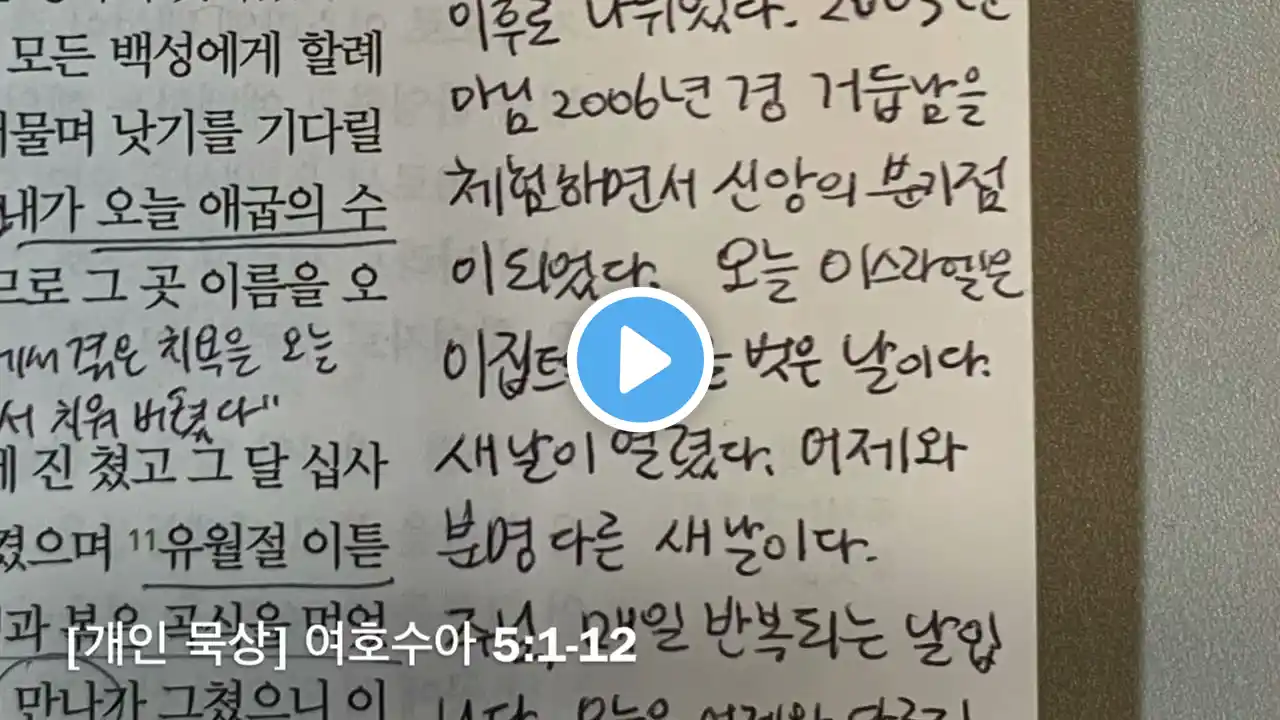 모든 백성에게 할례
물며 낫기를 기다릴
내가 오늘 애굽의 수
므로 그 곳 이름을 오
에서 겪은 치욕을 오늘
서 치워 버렸다"
진 쳤고 그 달 십사
켰으며 11유월절 이튿
볶은 곡식을 먹었
만나가 그쳤으니 이
이후로 나뉘었다.
아님 2006년 경 거듭남을
체험하면서 신앙의 분기점
이 되었다. 오늘 이스라엘은
벗은 날이다.
새날이 열렸다. 어제와
분명 다른 새날이다.
주님, 매일 반복되는 날입
[개인 묵상] 여호수아 5:1-12